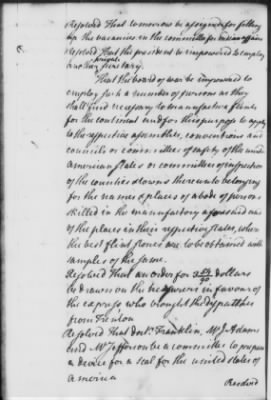 Resolved That tomorrow be assigned for filling
up the vacancies in the committee for indian affairs
Resolved That the president be impowered to employ
private
a secretary.
That the board of war be impowered to
employ such a number of persons as they
shall find necessary to manufacture flints
for the continent and for this purpose to apply
to the respective assemblies, conventions and
councils or committees of safety of the united
American states or committees of inspection
of the counties & towns thereunto belonging
for the names & places of abode of persons
skilled in the manufactory aforesaid and
of the places in their respective states, where
the best flint stones are to be obtained with
samples of the same.
Resolved That an order for dollars
be drawn on the treasurers in favour of
the express who brought the dispatches
from Trenton
Resolved That doctr. Franklin, Mr J. Adams
and Mr Jefferson be a committee to prepare
a device for a seal for the united states of
america
Resolved